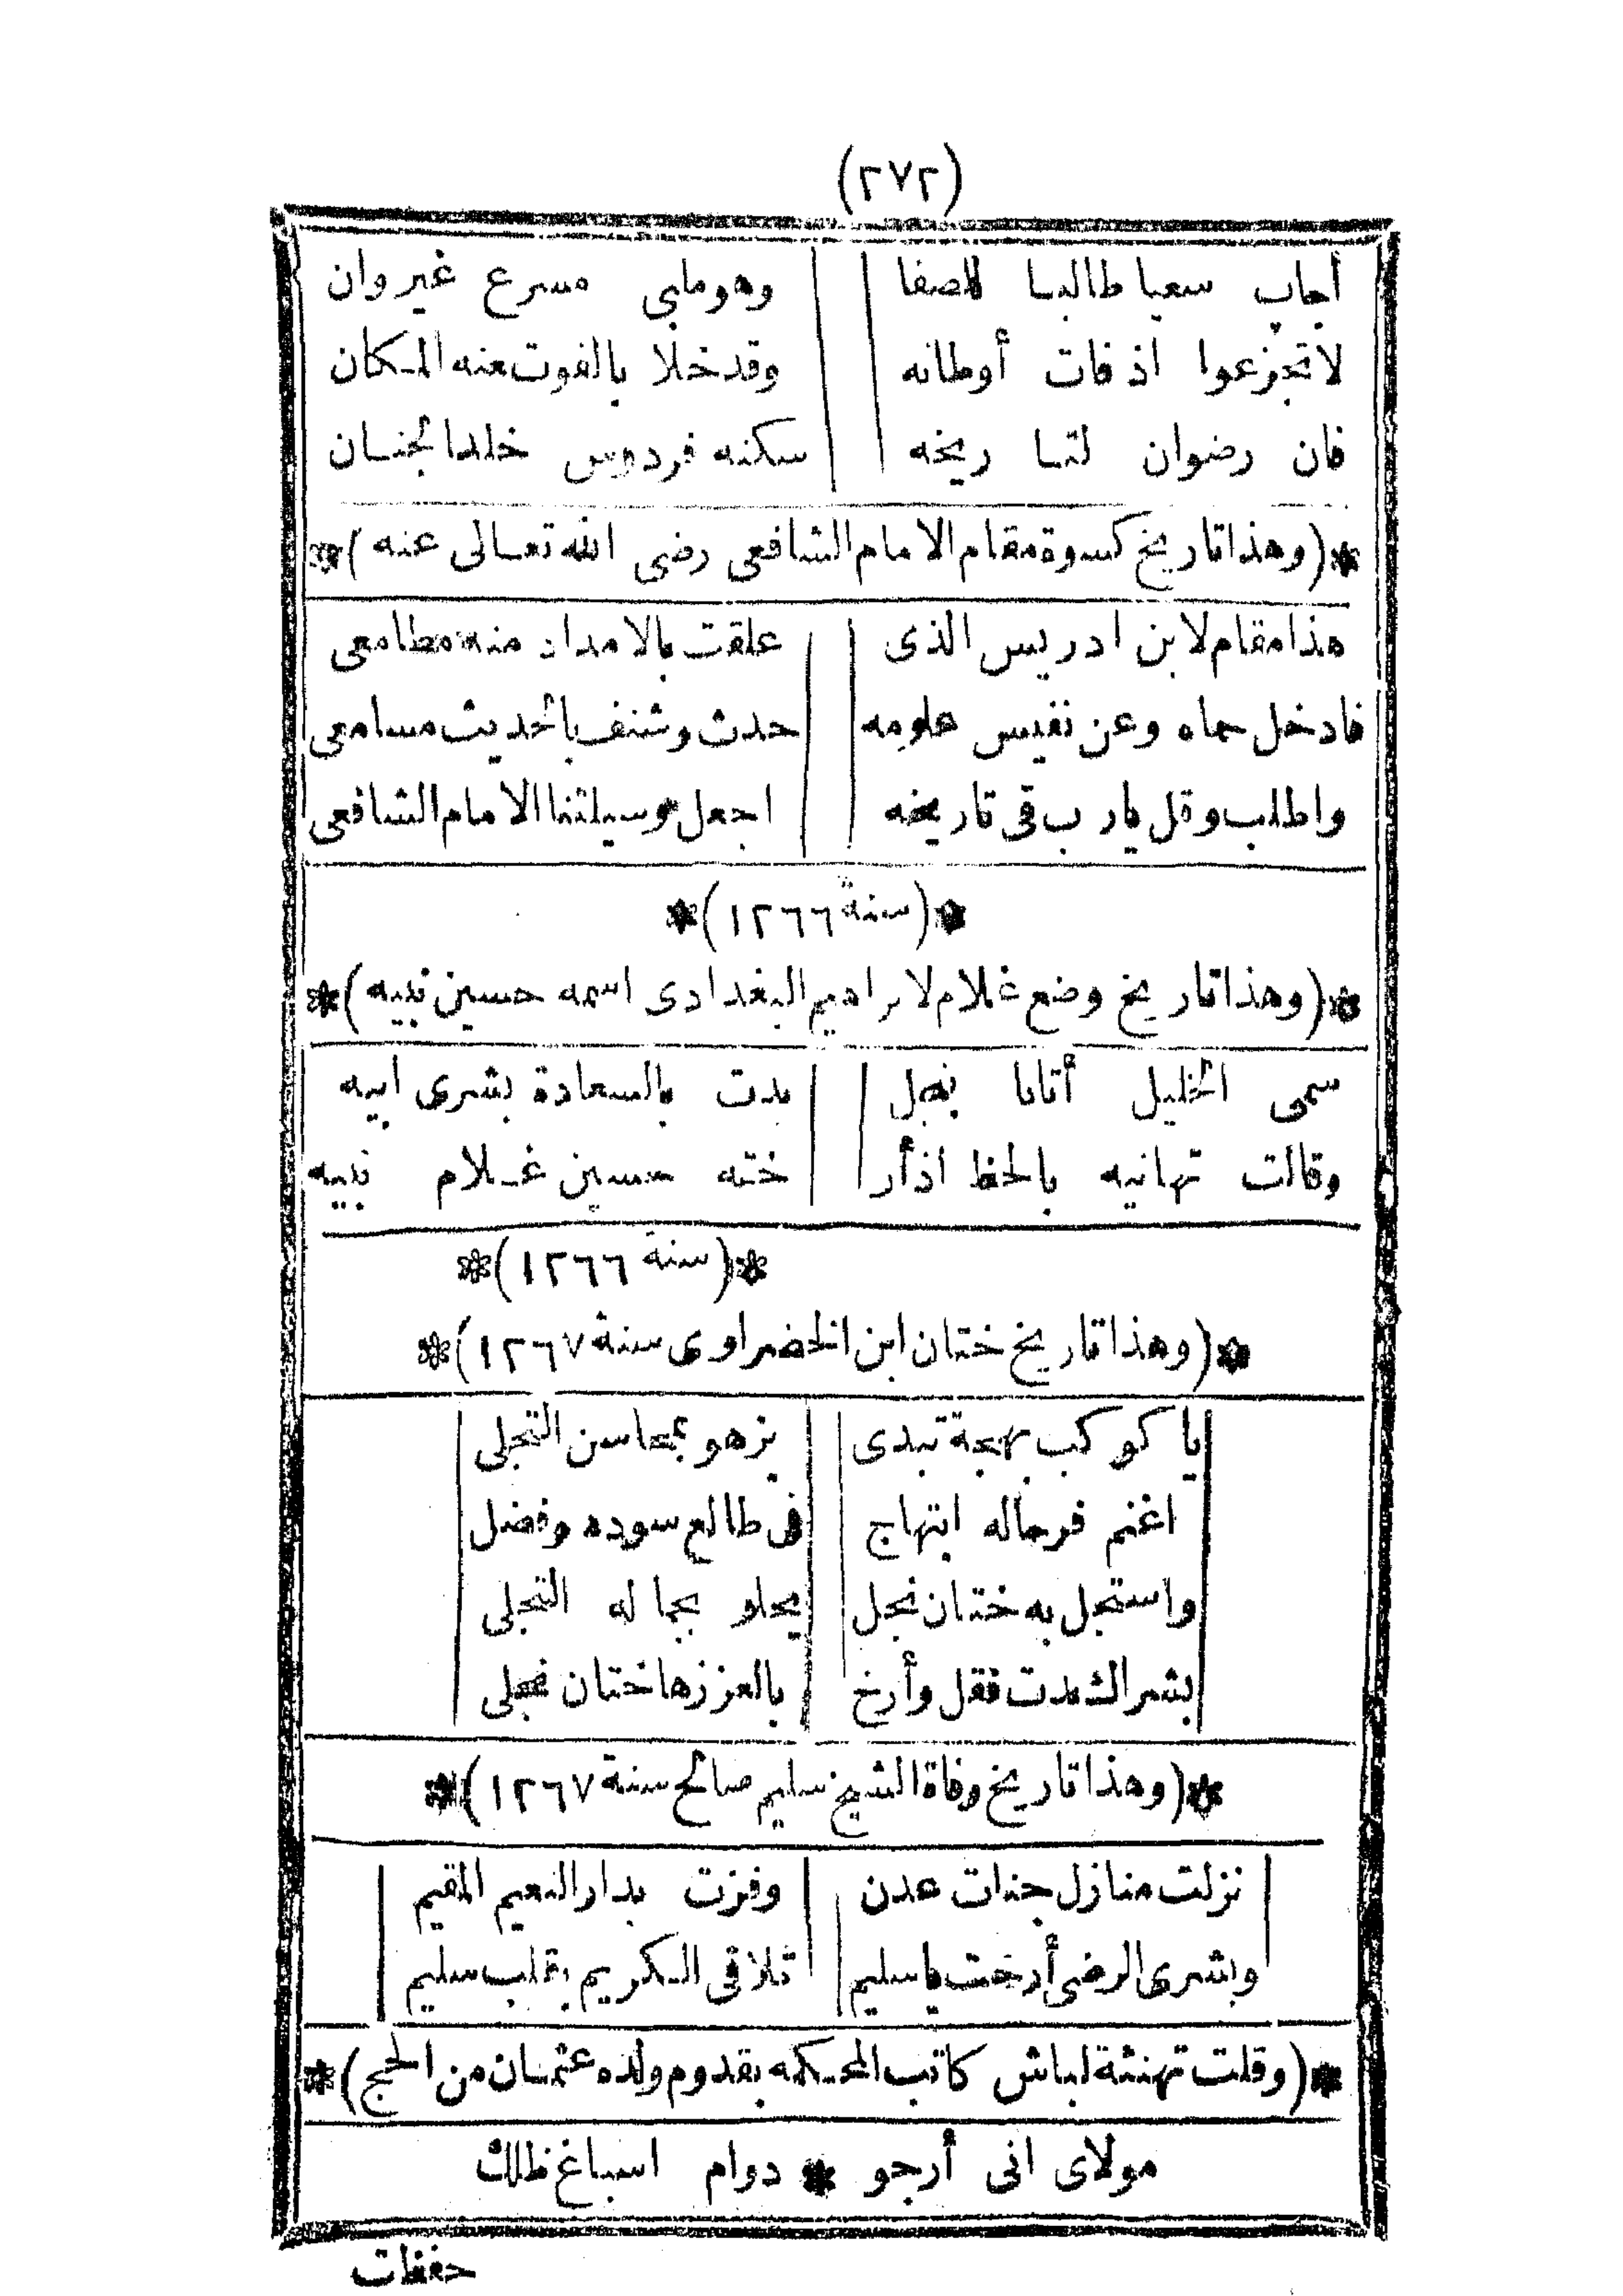 (٢٧٢)
أجاب سعيا طالبا للصفا وهو ملبى مسرع غير وان
لا تجزعوا اذ فات أوطانه وقد خلا بالفوت عنه المكان
فان رضوان لتا ريخه سكنه فردوس خلد الجنان
*(وهذا تاريخ كسوة مقام الامام الشافعى رضى الله تعالى عنه)*
هذا مقام لابن ادريس الذى علقت بالامداد منه مطامعى
فادخل حماه وعن نفيس علومه حدث وشنف بالحديث مسامعى
واطلب وقل يارب فى تاريخه اجعل وسيلتنا الامام الشافعى
*(سنة ١٢٦٦)*
*(وهذا تاريخ وضع غلام لابراهيم البغدادى اسمه حسين نبيه)*
سمى الخليل أتانا بنجل بدت بالسعادة بشرى ابيه
وقالت تهانيه بالحظ اذأر خته حسين غلام نبيه
*(سنة ١٢٦٦)*
*(وهذا تاريخ ختان ابن الخضراوى سنة ١٢٦٧)*
يا كوكب بهجة تبدى يزهو بمحاسن التجلى
اغنم فرحاله ابتهاج فى طالع سوده وفضل
واستجل به ختان نجل يحلو بجماله التجلى
بشراك بدت فقل وأرخ بالعز زها ختان نجلى
*(وهذا تاريخ وفاة الشيخ سليم صالح سنة ١٢٦٧)*
نزلت منازل جنات عدن وفزت بدار النعيم المقيم
وبشرى الرضى أرخت ياسليم تلاقى الكريم بقلب سليم
*(وقلت تهنئة لباش كاتب المحكمه بقدوم ولده عثمان من الحج)*
مولاى انى أرجو * دوام اسباغ ظلك
حفظات